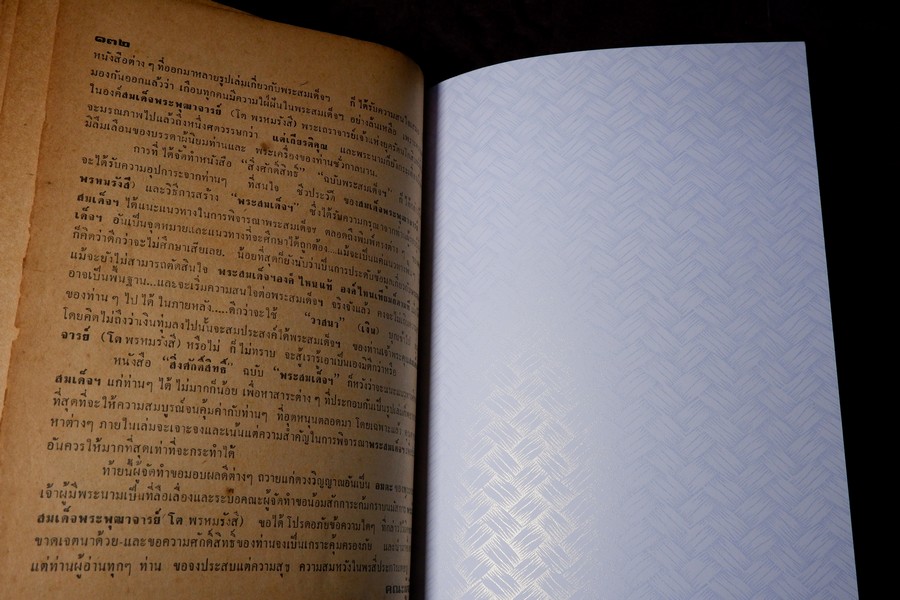 ๑๓๒
หนังสือต่าง ๆ ที่ออกมาหลายรูปเล่มเกี่ยวกับพระสมเด็จฯ ก็ได้รับความสนใจ
มองกันออกแล้วว่า เกือบทุกคนมีความใฝ่ฝันในพระสมเด็จฯ อย่างล้นเหลือ
ในองค์สมเด็จพระพุฒาจารย์ (โต พรหมรังสี) พระเถราจารย์เจ้าแห่งยุครัตนโกสินทร์
จะมรณภาพไปแล้วถึงหนึ่งศตวรรษกว่า แต่เกียรติคุณ และพระนามก็ยังคง
มิลืมเลือนของบรรดาผู้นิยมท่านและ พระเครื่องของท่านชั่วกาลนาน.
การที่ ได้จัดทำหนังสือ “สิ่งศักดิ์สิทธิ์” “ฉบับพระสมเด็จฯ”
จะได้รับความอุปการะจากท่านๆ ที่สนใจ ชีวประวัติ ของสมเด็จพระพุฒาจารย์
พรหมรังสี) และวิธีการสร้าง “พระสมเด็จฯ” ซึ่งได้รับความกรุณาจาก
สมเด็จฯ ได้แนะแนวทางในการพิจารณาพระสมเด็จฯ ตลอดถึงพิมพ์ทรงต่าง ๆ
เด็จฯ อันเป็นจุดหมายและแนวทางที่จะศึกษาได้ถูกต้อง...แม้จะเป็นแค่แนวทาง
ก็คิดว่าดีกว่าจะไม่ศึกษาเสียเลย. น้อยที่สุดก็ยังนับว่าเป็นการประดับข้อมูล
แม้จะยังไม่สามารถตัดสินใจ พระสมเด็จฯองค์ ไหนแท้ องค์ไหนเทียม
อาจเป็นพื้นฐาน...และจะเริ่มความสนใจต่อพระสมเด็จฯ จริงจังแล้ว
ของท่าน ๆ ไป ได้ ในภายหลัง.....ดีกว่าจะใช้ “วาสนา” (เงิน)
โดยคิดไม่ถึงว่าเงินทุ่มลงไปนั้นจะสมประสงค์ได้พระสมเด็จฯ ของท่านเจ้าประคุณ
จารย์ (โต พรหมรังสี) หรือไม่ ก็ ไม่ทราบ จะสู้เรารู้เอาเป็นเองมิดีกว่าหรือ
หนังสือ “สิ่งศักดิ์สิทธิ์” ฉบับ “พระสมเด็จฯ” ก็หวังว่าจะ
สมเด็จฯ แก่ท่านๆ ได้ ไม่มากก็น้อย เพื่อหาสาระต่าง ๆ ที่ประกอบกันเป็นรูปเล่ม
ที่สุดที่จะให้ความสมบูรณ์จนคุ้มค่ากับท่านๆ ที่อุดหนุนตลอดมา โดยเฉพาะแล้ว
หาต่างๆ ภายในเล่มจะเจาะจงและเน้นแต่ความสำคัญในการพิจารณาพระสมเด็จฯ
อันควรให้มากที่สุดเท่าที่จะกระทำได้
ท้ายนี้ผู้จัดทำขอมอบผลดีต่างๆ ถวายแก่ดวงวิญญาณอันเป็น อมตะ
เจ้าผู้มีพระนามเป็นที่ลือเลื่องและระบือคณะผู้จัดทำขอน้อมสักการะก้มกราบ
สมเด็จพระพุฒาจารย์ (โต พรหมรังสี) ขอได้ โปรดอภัยข้อความใดๆ
ขาดเจตนาด้วย-และขอความศักดิ์สิทธิ์ของท่านจงเป็นเกราะคุ้มครองภัย
แต่ท่านผู้อ่านทุกๆ ท่าน ขอจงประสบแต่ความสุข ความสมหวังในพรสี่ประการ
คณะผู้